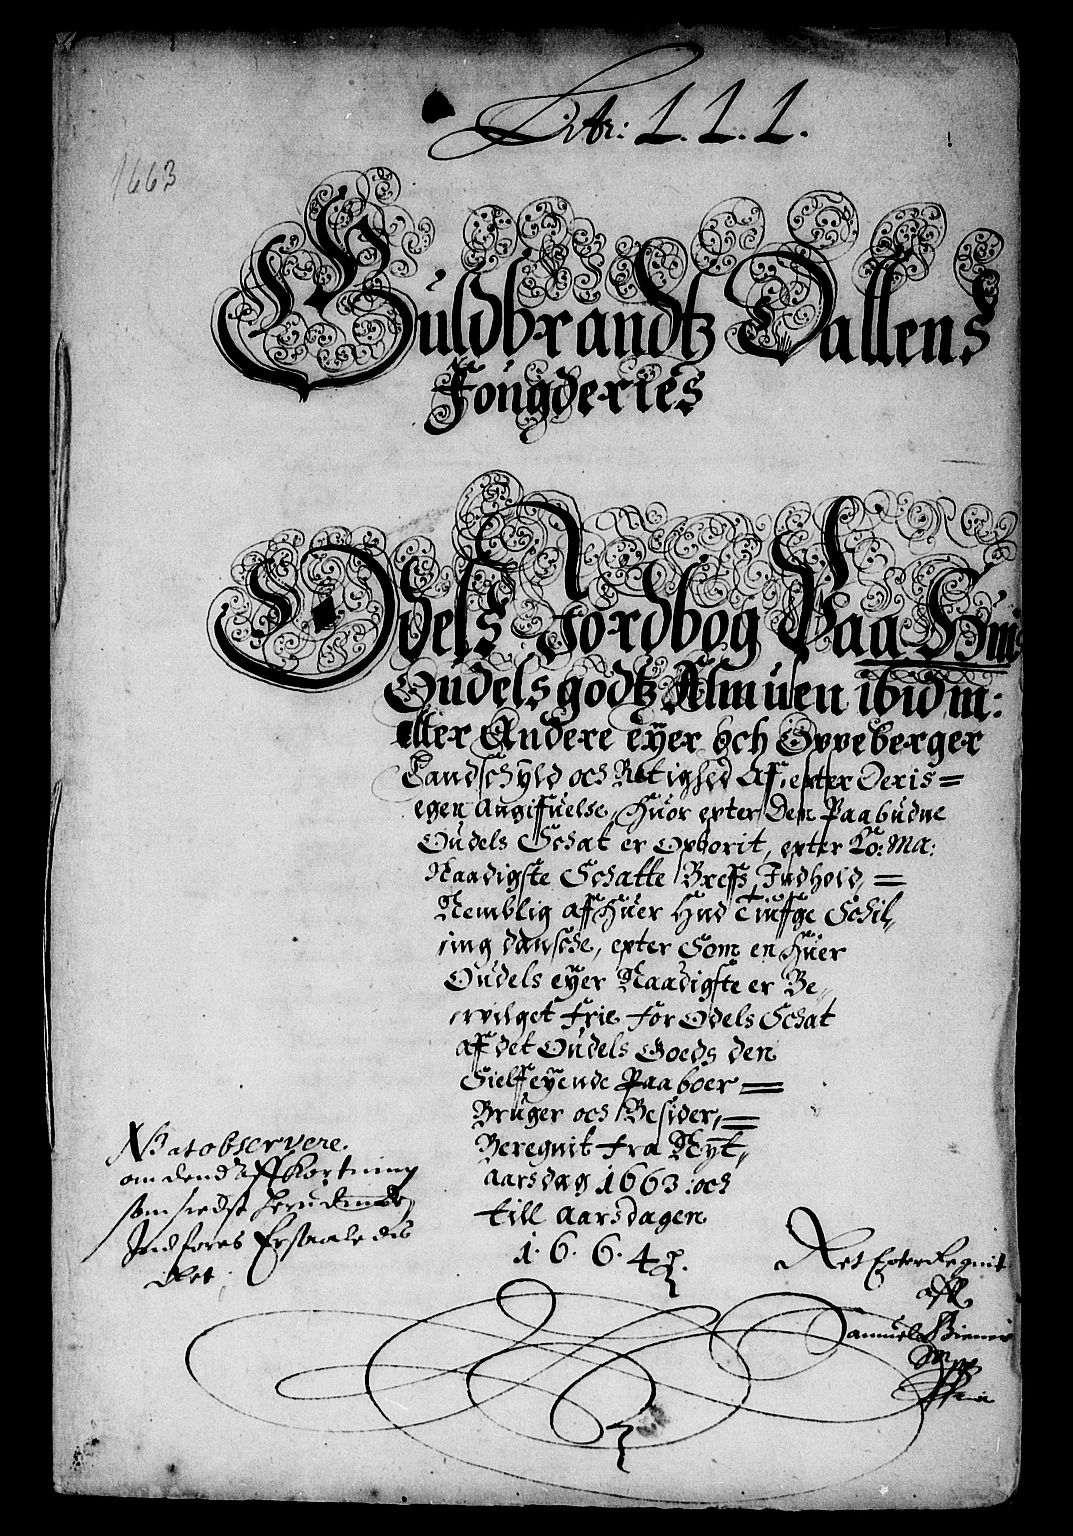 Litr: L. L. L.
1663
Guldbrandtz Dallens
Fougderies
Odels Jordbog Paa Huis
Oudels godtz Almuen ibidm:
eller Andere eyer och Oppeberger
Landschyld och Retighed Aff, epter Deris =
egen Angiffuelse, Huor epter Den Paabudne
Oudels Schat er Opborit, epter Ko: Ma:
Naadigste Schatte Breffs Indhold, =
Nemblig aff Huer Hud Tiuffge Schil,,
ing dansche, epter Som en Huer
Oudels eyer Naadigste er Be,,
wilget frie for Odels Schat
aff det Oudels Goeds den
Sielff eyende Paaboer =
Bruger och Besider, =
Beregnit fra Nyt,,
aarsdag 1663 : och
till aarsdagen
1. 6. 6. 4.
NB at observere.
om dend affkortning
som sidst herudinden
Indføres
Ret Epter Regnit
aff
Samuel
Mpp